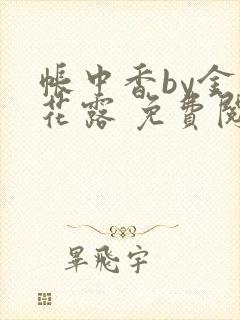 帳中香by金
花露 免費閱
畢飛宇